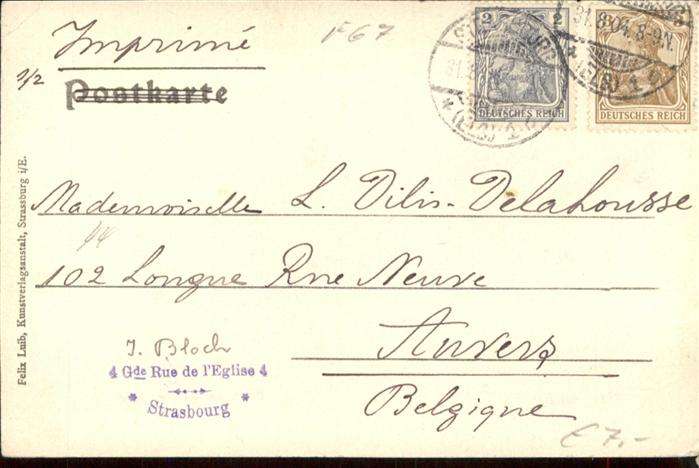 Imprimé
Postkarte
1/2
F67
2 2
DEUTSCHES REICH
3
DEUTSCHES REICH
31.8.04. 8-9N.
(ELS) 1
Mademoiselle L. Dilis-Delahousse
102 Longue Rue Neuve
Anvers
Belgique
J. Bloch
4 Gde Rue de l'Eglise 4
* Strasbourg *
€ 7.-
Felix Luib, Kunstverlagsanstalt, Strassburg i/E.